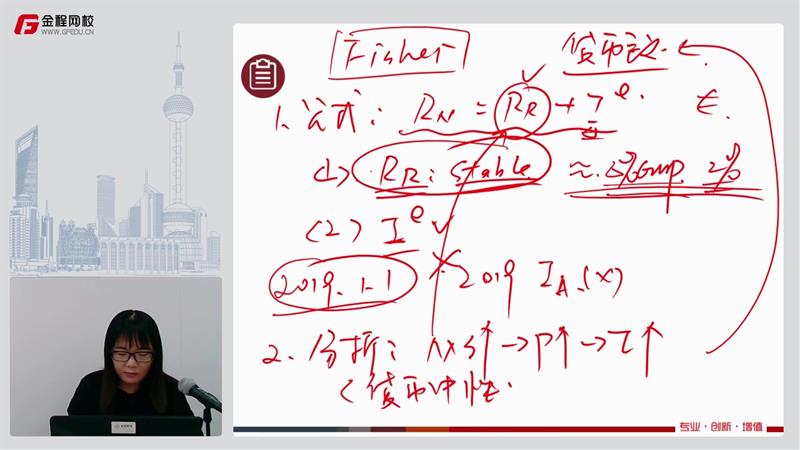 金程网校
WWW.GFEDU.CN
Fisher
货币主义
1、公式: RN = RR + I e. E.
(1) RR: stable ≈ Δ%GDP 2%
(2) I e
2019.1.1 2019 IA (X)
2、分析: MS↑→P↑→I↑
(货币中性.
专业·创新·增值